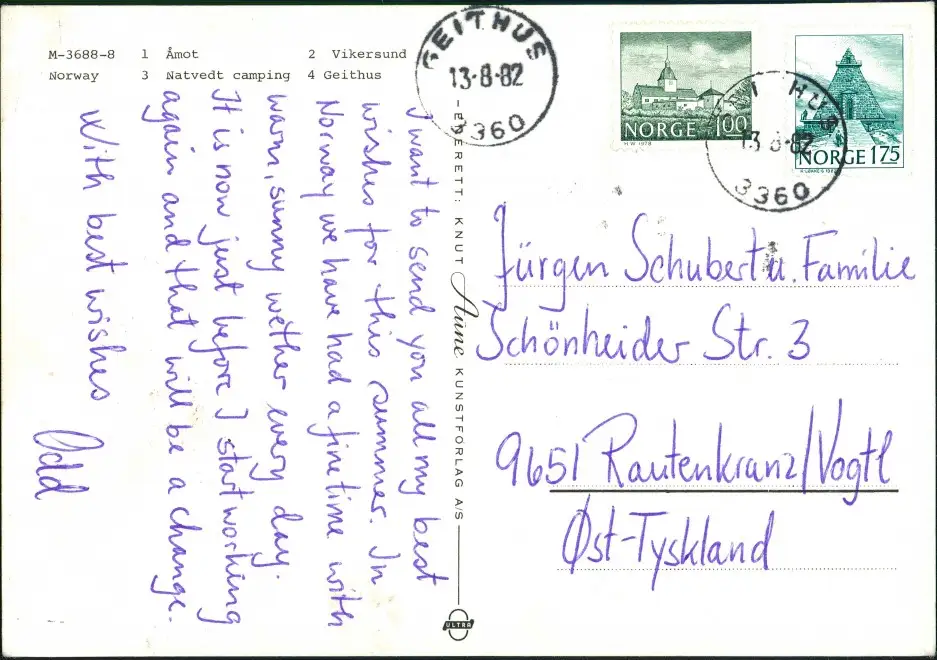 M-3688-8 1 Åmot 2 Vikersund
Norway 3 Natvedt camping 4 Geithus
GEITHUS
13-8-82
3360
NORGE 100
H W 1978
NORGE 175
HUS
13 8-82
3360
I want to send you all my best
wishes for this summer. In
Norway we have had a fine time with
warm, sunny wether every day.
It is now just before I start working
again and that will be a change.
With best wishes
Odd
ENERETT: KNUT Aune KUNSTFORLAG A/S
ULTRA
Jürgen Schubert u. Familie
Schönheider Str. 3
9651 Rautenkranz/Vogtl
Øst-Tyskland